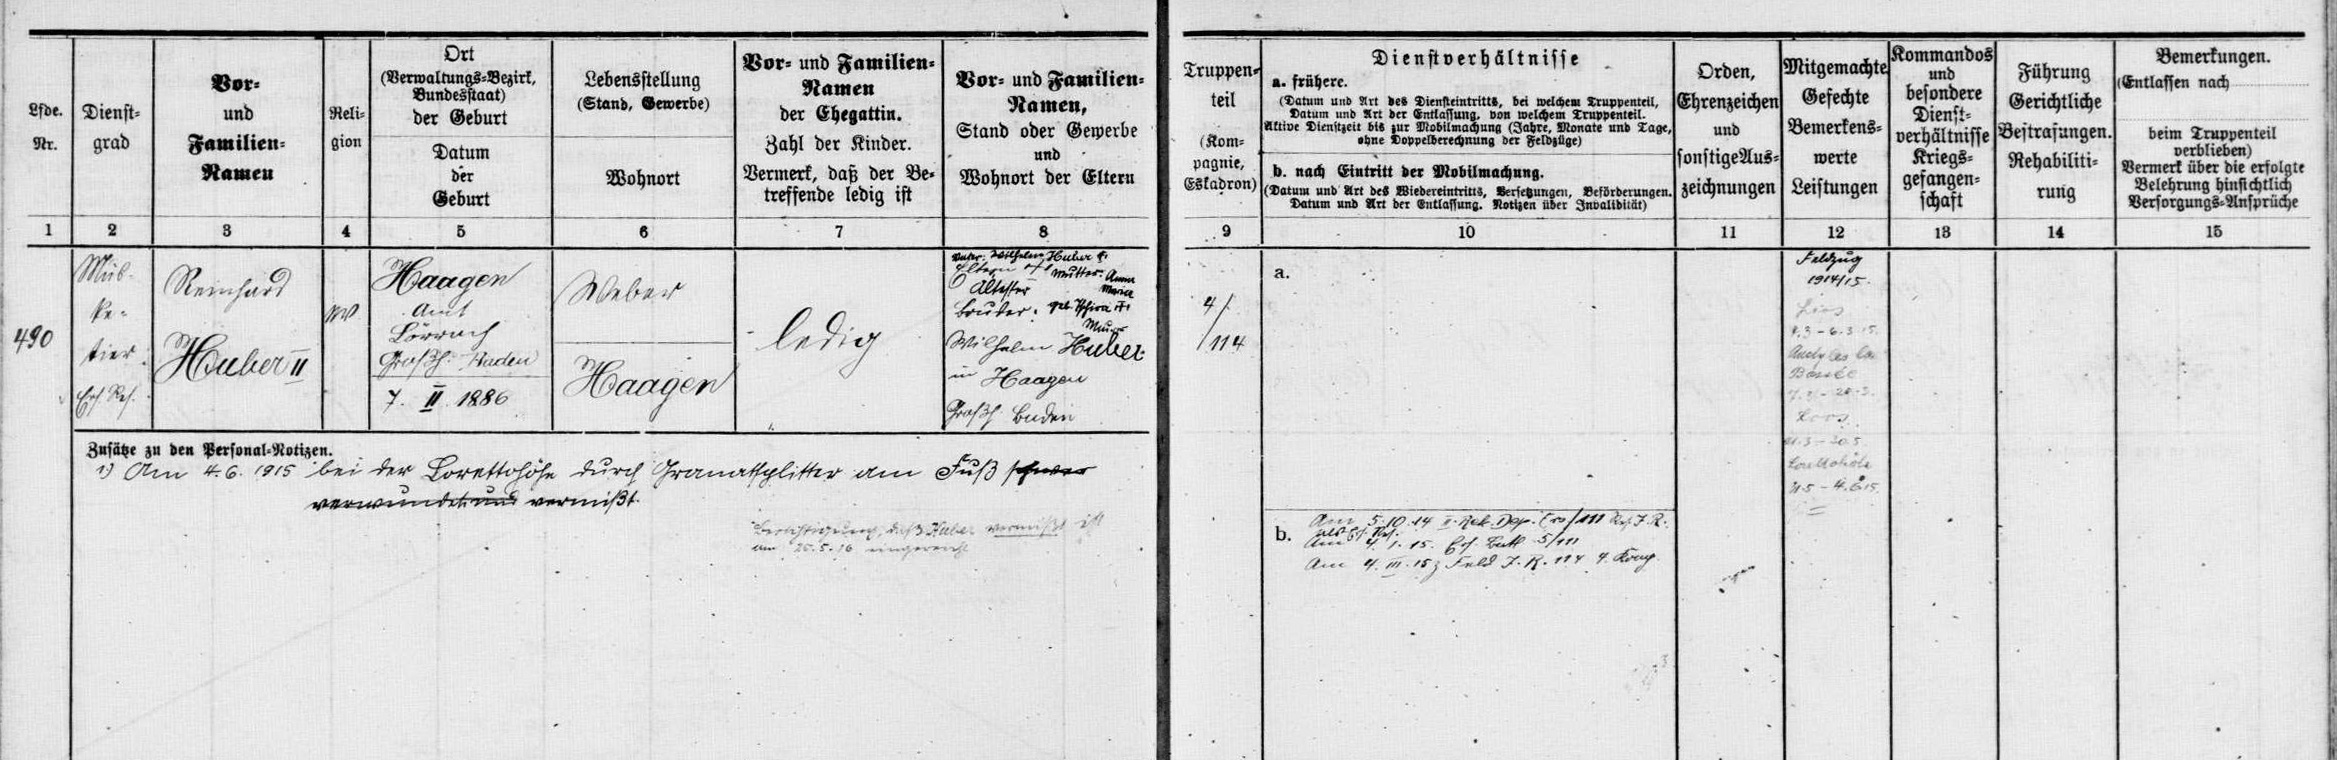 Lfde.
Nr.
Dienst-
grad
Vor-
und
Familien-
Namen
Reli-
gion
Ort
(Verwaltungs-Bezirk,
Bundesstaat)
der Geburt
Datum
der
Geburt
Lebensstellung
(Stand, Gewerbe)
Wohnort
Vor- und Familien-
Namen
der Ehegattin.
Zahl der Kinder.
Vermerk, daß der Be-
treffende ledig ist
Vor- und Familien-
Namen,
Stand oder Gewerbe
und
Wohnort der Eltern
1
2
3
4
5
6
7
8
490
Mus-
ke-
tier
Ers. Res.
Reinhard
Huber II
Haagen
Amt
Lörrach
Großh. Baden
7. II 1886
Weber
Haagen
ledig
Vater: Wilhelm Huber
Eltern Mutter: Anna
Maria
Ältester
Bruder. geb.
Wilhelm Huber
in Haagen
Großh. Baden
Zusätze zu den Personal-Notizen.
1) Am 4.6.1915 bei der Lorettohöhe durch Granatsplitter am Fuß schwer
verwundet und vermißt.
Berichtigung, daß Huber vermißt ist
am 25.5.16 eingereicht
Truppen-
teil
(Kom-
pagnie,
Eskadron)
Dienstverhältnisse
a. frühere.
(Datum und Art des Diensteintritts, bei welchem Truppenteil,
Datum und Art der Entlassung, von welchem Truppenteil.
Aktive Dienstzeit bis zur Mobilmachung (Jahre, Monate und Tage,
ohne Doppelberechnung der Feldzüge)
b. nach Eintritt der Mobilmachung.
(Datum und Art des Wiedereintritts, Versetzungen, Beförderungen.
Datum und Art der Entlassung. Notizen über Invalidität)
Orden,
Ehrenzeichen
und
sonstige Aus-
zeichnungen
Mitgemachte
Gefechte
Bemerkens-
werte
Leistungen
Kommandos
und
besondere
Dienst-
verhältnisse
Kriegs-
gefangen-
schaft
Führung
Gerichtliche
Bestrafungen.
Rehabiliti-
rung
Bemerkungen.
(Entlassen nach
beim Truppenteil
verblieben)
Vermerk über die erfolgte
Belehrung hinsichtlich
Versorgungs-Ansprüche
9
10
11
12
13
14
15
4/
114
a.
b.
Am 5.10.14 II. Rek. Dep. /111 Res. J. R.
als Ers. Res.
Am 4.1.15. Ers. Batl. 5/111
Am 4.III.15 z. Feld J. R. 114 4. Komp.
Feldzug
1914/15.
- 6.3.15.
La
Bassée
Loos
- 20.5.
Lorettohöhe
- 4.6.15.